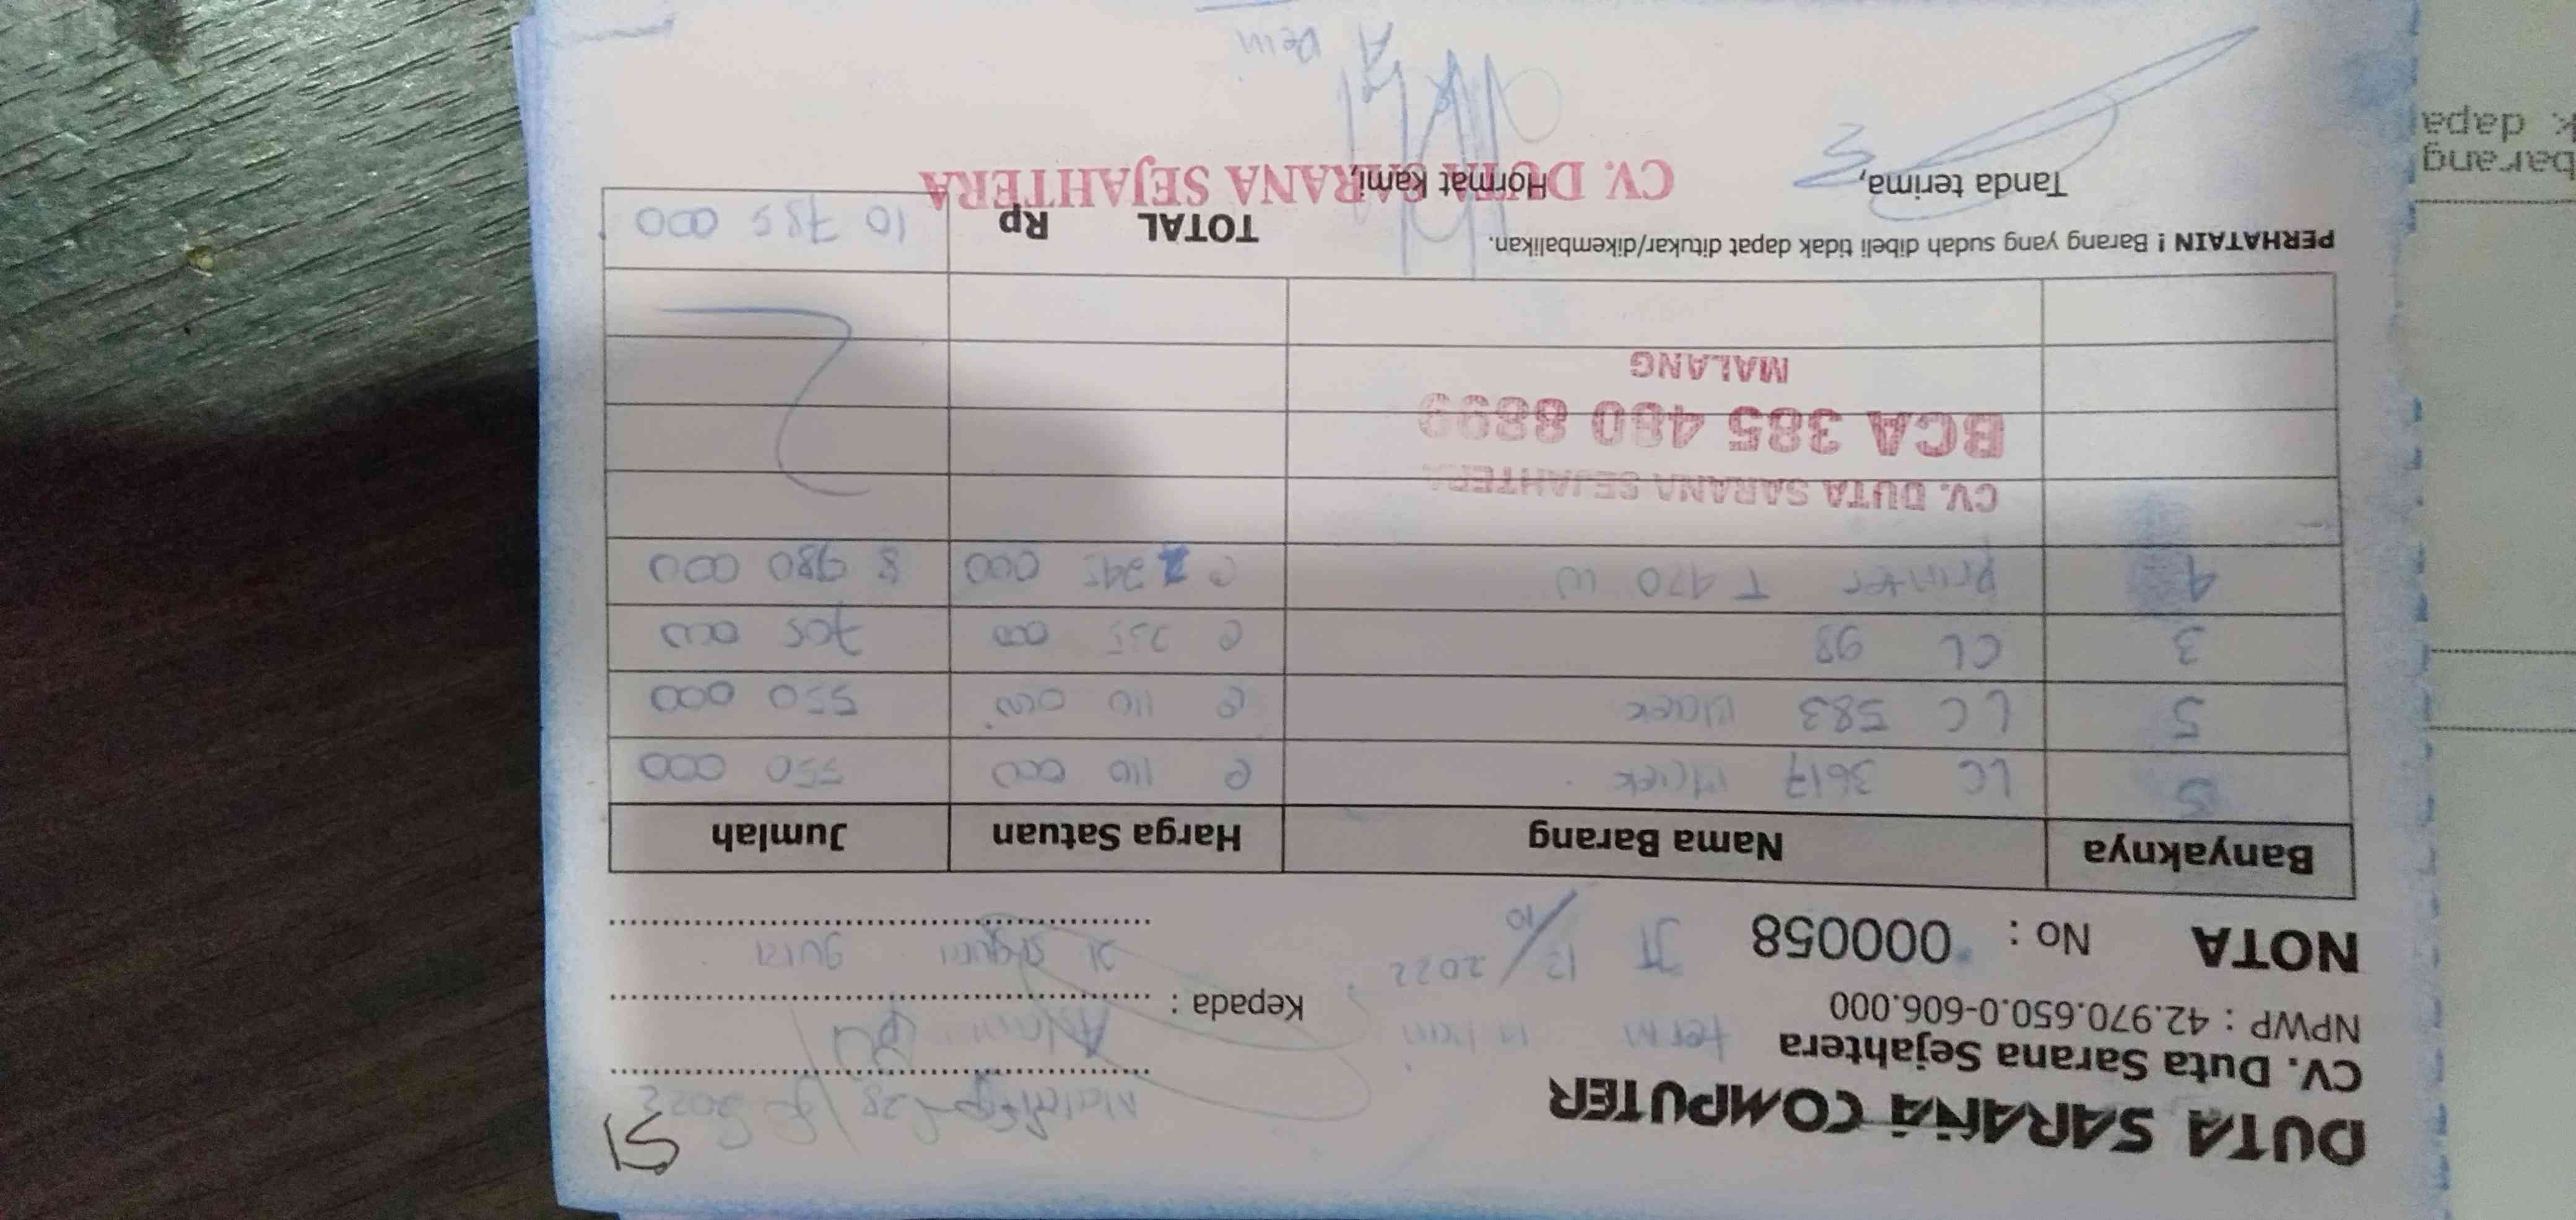 DUTA SARANA COMPUTER
CV. Duta Sarana Sejahtera
NPWP : 42.970.650.0-606.000
NOTA No : 000058
term
JT 12/10 2022
51
28 / 2022
Kepada :
Jl
Banyaknya Nama Barang Harga Satuan Jumlah
5 LC 3617 Black @ 110 000 550 000
5 LC 583 Black @ 110 000 550 000
3 CL 98 @ 235 000 705 000
4 Printer T 470 W @ 2 245 000 8 980 000
CV. DUTA SARANA SEJAHTERA
BCA 385 480 8899
MALANG
PERHATAIN ! Barang yang sudah dibeli tidak dapat ditukar/dikembalikan.
TOTAL Rp 10 785 000
Tanda terima,
Hormat Kami,
CV. DUTA SARANA SEJAHTERA
barang
k dapa